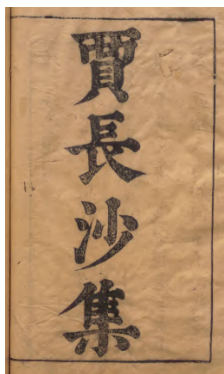 賈長沙集